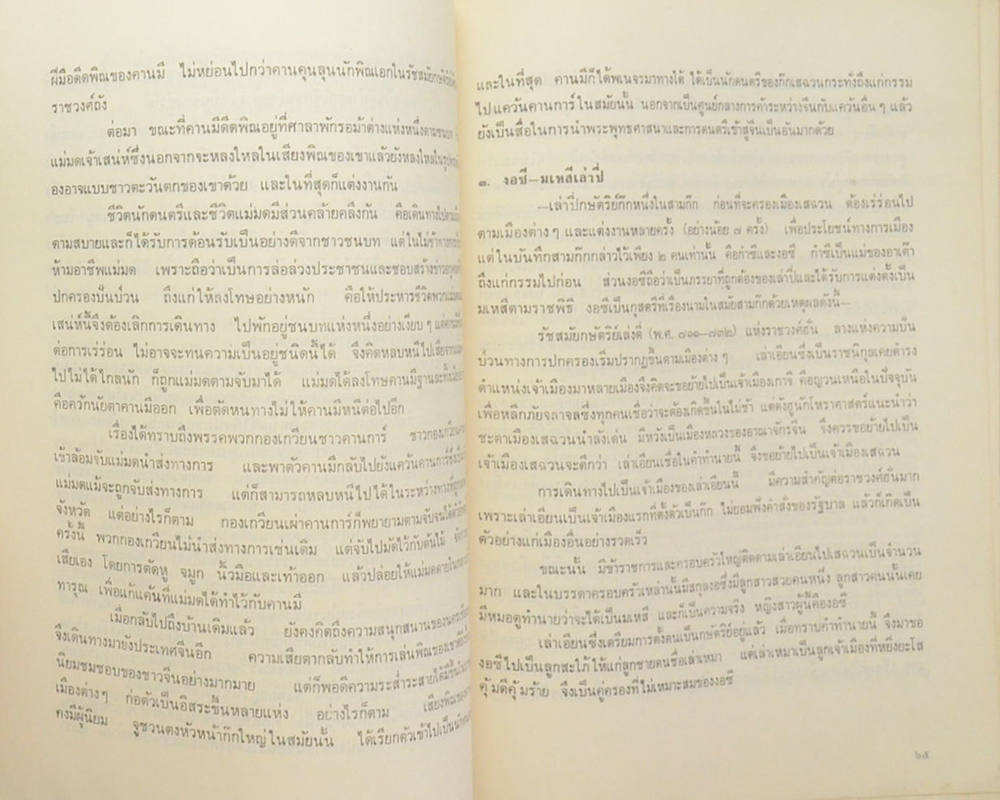 ฝีมือดีดพิณของคานมี ไม่หย่อนไปกว่าคานคุนลุนนักพิณเอกในรัชสมัย
ราชวงศ์ถัง
ต่อมา ขณะที่คานมีดีดพิณอยู่ที่ศาลาพักรอม้าต่างแห่งหนึ่งตามชนบท
แม่มดเจ้าเสน่ห์ซึ่งนอกจากจะหลงใหลในเสียงพิณของเขาแล้วยังหลงใหลในรูป
องอาจแบบชาวตะวันตกของเขาด้วย และในที่สุดก็แต่งงานกัน
ชีวิตนักดนตรีและชีวิตแม่มดมีส่วนคล้ายคลึงกัน คือเดินทางไป
ตามสบายและก็ได้รับการต้อนรับเป็นอย่างดีจากชาวชนบท แต่ในไม่ช้าทาง
ห้ามอาชีพแม่มด เพราะถือว่าเป็นการล่อลวงประชาชนและชอบสร้าง
ปกครองปั่นป่วน ถึงแก่ให้ลงโทษอย่างหนัก คือให้ประหารชีวิตพวก
เสน่ห์นี้จึงต้องเลิกการเดินทาง ไปพักอยู่ชนบทแห่งหนึ่งอย่างเงียบๆ
ต่อการเร่ร่อน ไม่อาจจะทนความเป็นอยู่ชนิดนี้ได้ จึงคิดหลบหนีไปเสีย
ไปไม่ได้ไกลนัก ก็ถูกแม่มดตามจับมาได้ แม่มดได้ลงโทษคานมีฐาน
คือควักนัยตาคานมีออก เพื่อตัดหนทางไม่ให้คานมีหนีต่อไปอีก
เรื่องได้ทราบถึงพรรคพวกกองเกวียนชาวคานการ์ ชาวกองเกวียน
เข้าล้อมจับแม่มดนำส่งทางการ และพาตัวคานมีกลับไปยังแคว้นคานการ์
แม่มดแม้จะถูกจับส่งทางการ แต่ก็สามารถหลบหนีไปได้ในระหว่างทาง
จังหวัด แต่อย่างไรก็ตาม กองเกวียนเผ่าคานการ์ก็พยายามตามจับจนได้
ครั้งนี้ พวกกองเกวียนไม่นำส่งทางการเช่นเดิม แต่จับไปมัดไว้กับต้นไม้
เสียเอง โดยการตัดหู จมูก นิ้วมือและเท้าออก แล้วปล่อยให้แม่มดตาย
ทารุณ เพื่อแก้แค้นที่แม่มดได้ทำไว้กับคานมี
เมื่อกลับไปถึงบ้านเดิมแล้ว ยังคงคิดถึงความสนุกสนานของ
จึงเดินทางมายังประเทศจีนอีก ความเสียตากลับทำให้การเล่นพิณของเขา
นิยมชมชอบของชาวจีนอย่างมากมาย แต่ก็พอดีความระส่ำระสายได้
เมืองต่างๆ ก่อตัวเป็นอิสระขึ้นหลายแห่ง อย่างไรก็ตาม เสียงพิณของ
คงมีผู้นิยม จูชวนตงหัวหน้าก๊กใหญ่ในสมัยนั้น ได้เรียกตัวเข้าไปเป็น
และในที่สุด คานมีก็ได้พเนจรมาทางใต้ ได้เป็นนักดนตรีของก๊กเสฉวนกระทั่งถึงแก่กรรม
ไปแคว้นคานการ์ในสมัยนั้น นอกจากเป็นศูนย์กลางการค้าระหว่างจีนกับแคว้นอื่นๆ แล้ว
ยังเป็นสื่อในการนำพระพุทธศาสนาและการดนตรีเข้าสู่จีนเป็นอันมากด้วย
๓. งอซี—มเหสีเล่าปี่
—เล่าปี่กษัตริย์ก๊กหนึ่งในสามก๊ก ก่อนที่จะครองเมืองเสฉวน ต้องเร่ร่อนไป
ตามเมืองต่างๆ และแต่งงานหลายครั้ง (อย่างน้อย ๗ ครั้ง) เพื่อประโยชน์ทางการเมือง
แต่ในบันทึกสามก๊กกล่าวไว้เพียง ๒ คนเท่านั้น คือกำซีและงอซี กำซีเป็นแม่ของอาเต๊า
ถึงแก่กรรมไปก่อน ส่วนงอซีถือว่าเป็นภรรยาที่ถูกต้องของเล่าปี่และได้รับการแต่งตั้งเป็น
มเหสีตามราชพิธี งอซีเป็นกุลสตรีที่เรืองนามในสมัยสามก๊กด้วยเหตุผลดังนี้—
รัชสมัยกษัตริย์เล่งตี่ (พ.ศ. ๗๑๑—๗๓๒) แห่งราชวงศ์ฮั่น ลางแห่งความปั่น
ป่วนทางการปกครองเริ่มปรากฏขึ้นตามเมืองต่างๆ เล่าเอียนซึ่งเป็นราชนิกูลเคยดำรง
ตำแหน่งเจ้าเมืองมาหลายเมืองจึงคิดจะขอย้ายไปเป็นเจ้าเมืองเกาจี คือญวนเหนือในปัจจุบัน
เพื่อหลีกภัยจลาจลซึ่งทุกคนเชื่อว่าจะต้องเกิดขึ้นในไม่ช้า แต่ตังฮูนักโหราศาสตร์แนะนำว่า
ชะตาเมืองเสฉวนนำลังเด่น มีหวังเป็นเมืองหลวงของอาณาจักรจีน จึงควรขอย้ายไปเป็น
เจ้าเมืองเสฉวนจะดีกว่า เล่าเอียนเชื่อในคำทำนายนี้ จึงขอย้ายไปเป็นเจ้าเมืองเสฉวน
การเดินทางไปเป็นเจ้าเมืองของเล่าเอียนนี้ มีความสำคัญต่อราชวงศ์ฮั่นมาก
เพราะเล่าเอียนเป็นเจ้าเมืองแรกที่ตั้งตัวเป็นก๊ก ไม่ยอมฟังคำสั่งของรัฐบาล แล้วก็เกิดเป็น
ตัวอย่างแก่เมืองอื่นอย่างรวดเร็ว
ขณะนั้น มีข้าราชการและครอบครัวใหญ่ติดตามเล่าเอียนไปเสฉวนเป็นจำนวน
มาก และในบรรดาครอบครัวเหล่านั้นมีสกุลงอซึ่งมีลูกสาวสวยคนหนึ่ง ลูกสาวคนนั้นเคย
มีหมอดูทำนายว่าจะได้เป็นมเหสี และก็เป็นความจริง หญิงสาวผู้นี้คืองอซี
เล่าเอียนซึ่งเตรียมการตั้งตนเป็นกษัตริย์อยู่แล้ว เมื่อทราบคำทำนายนี้ จึงมาขอ
งอซีไปเป็นลูกสะใภ้ ให้แก่ลูกชายคนชื่อเล่าเหมา แต่เล่าเหมาเป็นลูกเจ้าเมืองที่หยิ่งยะโส
คุ้มดีคุ้มร้าย จึงเป็นคู่ครองที่ไม่เหมาะสมของงอซี
๖๕